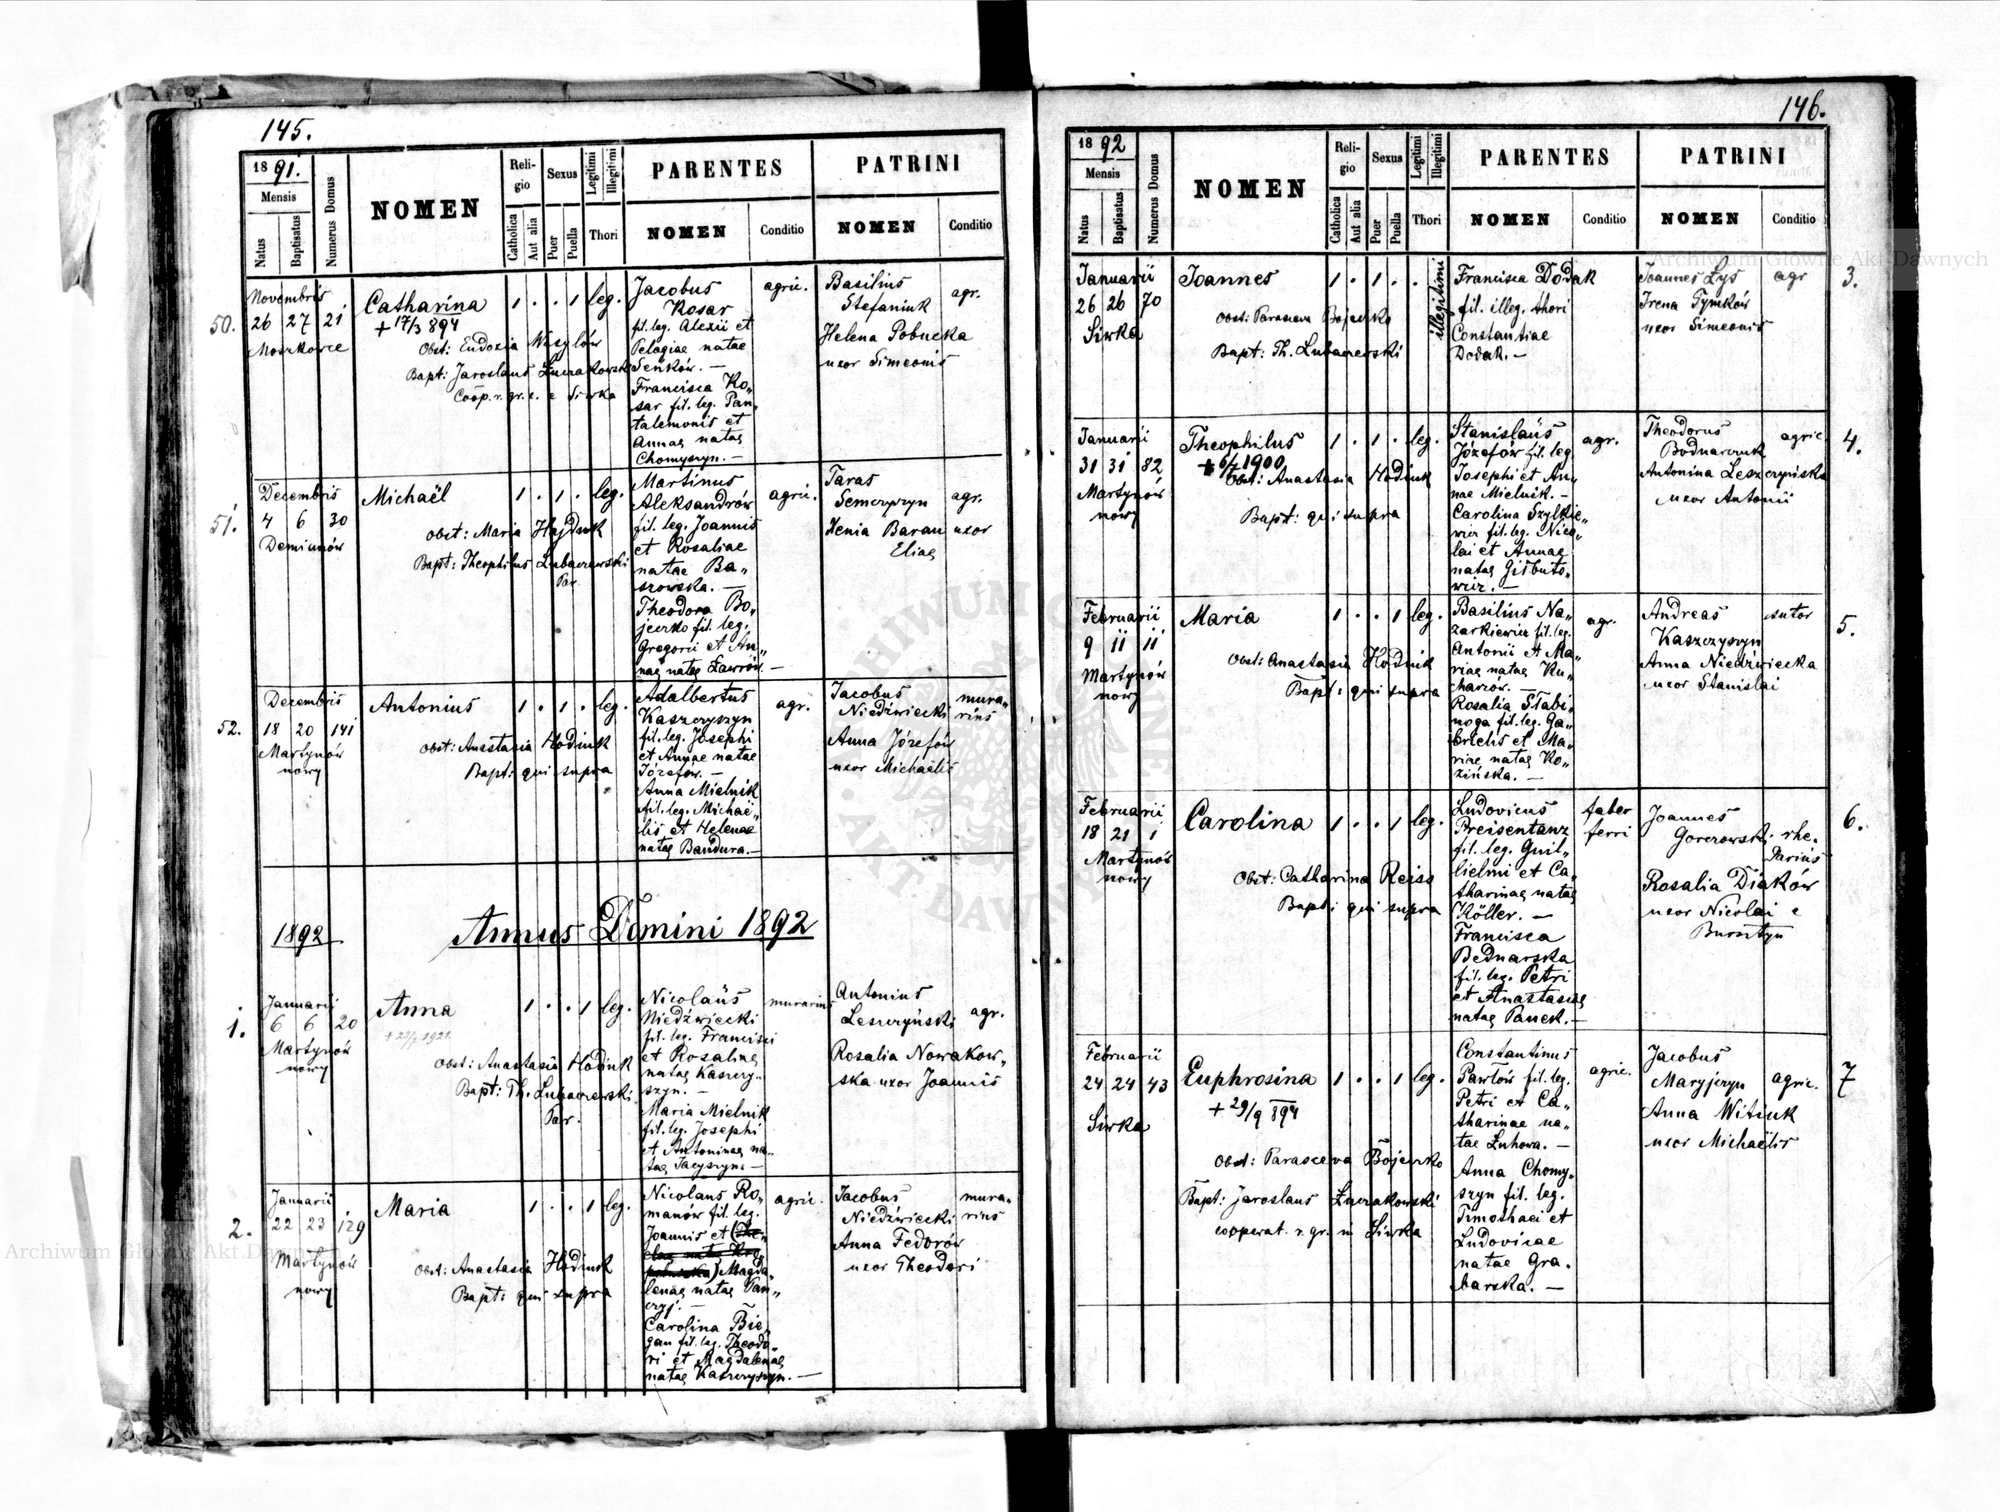 145.
1891.
Mensis
Natus
Baptisatus
Numerus Domus
NOMEN
Reli-
gio
Catholica
Aut alia
Sexus
Puer
Puella
Legitimi
Illegitimi
Thori
PARENTES
NOMEN
Conditio
PATRINI
NOMEN
Conditio
50.
Novembris
26 27 21
Moszkowce
Catharina
+ 17/3 894
Obst: Eudoxia Wasylów
Bapt: Jaroslaus Łuczakowski
Coop. r. gr. c. e Siwka
1 . . 1 leg.
Jacobus
Kosar
fil. leg. Alexii et
Pelagiae natae
Seńków. —
Francisca Ko„
sar fil. leg. Pan„
talemonis et
Annae natae
Chomyszyn. —
agric.
Basilius
Stefaniuk
Helena Pobucka
uxor Simeonis
agr.
51.
Decembris
4 6 30
Demianów
Michaël
Obst: Maria Hajduk
Bapt: Theophilus Lubaczewski
Par.
1 . 1 . leg.
Martinus
Aleksandrów
fil. leg. Joannis
et Rosaliae
natae Ba„
szowska. —
Theodora Bo„
jeczko fil. leg.
Gregorii et An„
nae natae Ławrów. —
agric.
Taras
Semczyszyn
Xenia Baran uxor
Eliae
agr.
52.
Decembris
18 20 141
Martynów
nowy
Antonius
Obst: Anastasia Hodiuk
Bapt: qui supra
1 . 1 . leg.
Adalbertus
Kaszczyszyn
fil. leg. Josephi
et Annae natae
Józefow. —
Anna Mielnik
fil. leg. Michaë„
lis et Helenae
natae Bandura. —
agr.
Jacobus
Niedźwiecki
Anna Józefów
uxor Michaëlis
mura„
rius
1892
Annus Domini 1892
1.
Januarii
6 6 20
Martynów
nowy
Anna
Obst: Anastasia Hodiuk
Bapt: Th. Lubaczewski
Par.
1 . . 1 leg.
Nicolaus
Niedźwiecki
fil. leg. Francisci
et Rosaliae
natae Kaszczy„
szyn. —
Maria Mielnik
fil. leg. Josephi
et Antoninae na„
tae Jacyszyn. —
murarius
Antonius
Leszczyński
Rosalia Nowakow„
ska uxor Joannis
agr.
2.
Januarii
22 23 129
Martynów
nowy
Maria
Obst: Anastasia Hodiuk
Bapt: qui supra
1 . . 1 leg.
Nicolaus Ro„
manów fil. leg.
Joannis et
Magda„
lenae natae
Carolina Bie„
gan fil. leg. Theodo„
ri et Magdalenae
natae Kaszczyszyn. —
agric.
Jacobus
Niedźwiecki
Anna Fedorów
uxor Theodori
mura„
rius
146.
1892
Mensis
Natus
Baptisatus
Numerus Domus
NOMEN
Reli-
gio
Catholica
Aut alia
Sexus
Puer
Puella
Legitimi
Illegitimi
Thori
PARENTES
NOMEN
Conditio
PATRINI
NOMEN
Conditio
Januarii
26 26 70
Siwka
Joannes
Obst: Parasceva Bojeczko
Bapt: Th. Lubaczewski
1 . 1 . .
illegitimi
Francisca Dodak
fil. illeg. thori
Constantiae
Dodak. —
Joannes Łys
Irena Tymków
uxor Simeonis
agr
3.
Januarii
31 31 82
Martynów
nowy
Theophilus
Obst: Anastasia Hodiuk
Bapt: qui supra
1 . 1 . leg.
Stanislaüs
Józefów fil. leg.
Josephi et An„
nae Mielnik. —
Carolina Szylkie„
wicz fil. leg. Nico„
lai et Annae
natae Gisbuto„
wicz. —
agr.
Theodorus
Bodnarczuk
Antonina Leszczyńska
uxor Antonii
agric.
4.
Februarii
9 11 11
Martynów
nowy
Maria
Obst: Anastasia Hodiuk
Bapt: qui supra
1 . . 1 leg.
Basilius Na„
zarkiewicz fil. leg.
Antonii et Ma„
riae natae Ku„
charów. —
Rosalia Słabi„
noga fil. leg. Ga„
brielis et Ma„
riae natae Ko„
zińska. —
agr.
Andreas
Kaszczyszyn
Anna Niedźwiecka
uxor Stanislai
sutor
5.
Februarii
18 21 1
Martynów
nowy
Carolina
Obst: Catharina Reiss
Bapt: qui supra
1 . . 1 leg.
Ludovicus
Preisentanz
fil. leg. Guil„
lielmi et Ca„
tharinae natae
Köller. —
Francisca
Bednarska
fil. leg. Petri
et Anastasiae
natae Panek. —
faber
ferri
Joannes
Gorczowski
Rosalia Diaków
uxor Nicolai e
Bursztyn
rhe„
darius
6.
Februarii
24 24 43
Siwka
Euphrosina
+ 29/9 894
Obst: Parasceva Bojeczko
Bapt: Jaroslaus Łuczakowski
cooperat. r. gr. in Siwka
1 . . 1 leg.
Constantinus
Pawłów fil. leg.
Petri et Ca„
tharinae na„
tae Luhowa. —
Anna Chomy„
szyn fil. leg.
Timothaei et
Ludovicae
natae Gra„
barska. —
agric.
Jacobus
Maryjczyn
Anna Witiuk
uxor Michaëlis
agric.
7
Archiwum Główne Akt Dawnych
Archiwum Główne Akt Dawnych
ARCHIWUM GŁÓWNE
AKT DAWNYCH